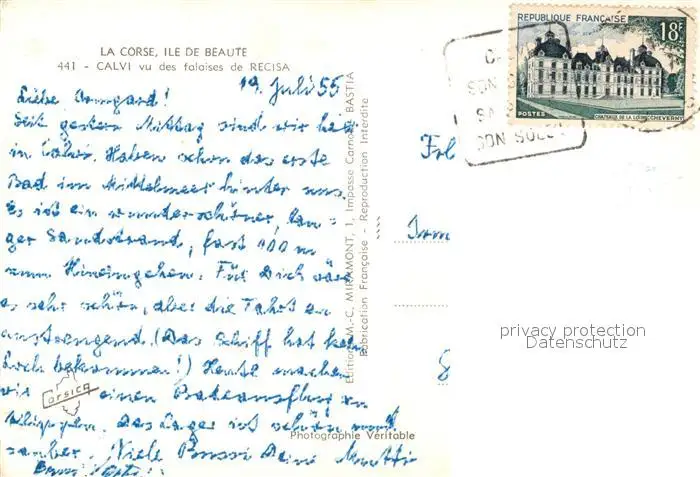 LA CORSE, ILE DE BEAUTE
441 - CALVI vu des falaises de RECISA
19. Juli 55
Liebe Irmgard!
Seit gestern Mittag sind wir hier
in Calvi. Haben schon das erste
Bad im Mittelmeer hinter uns.
Es ist ein wunderschöner, lan-
ger Sandstrand, fast 100 m
zum Hineingehen. Für Dich wäre
es sehr schön, aber die Fahrt
anstrengend. (Das Schiff hat kein
Loch bekommen!) Heute machen
wir einen Badeausflug
Das Lager ist schön und
sauber. Viele Bussi Deine Mutti
Corsica
Photographie Véritable
Editions M.-C. MIRAMONT, 1, Impasse Carnot BASTIA
Fabrication Française - Reproduction Interdite
REPUBLIQUE FRANÇAISE
18F
POSTES
CHATEAUX DE LA LOIRE CHEVERNY
SON
SA
SON SOLEIL
privacy protection
Datenschutz